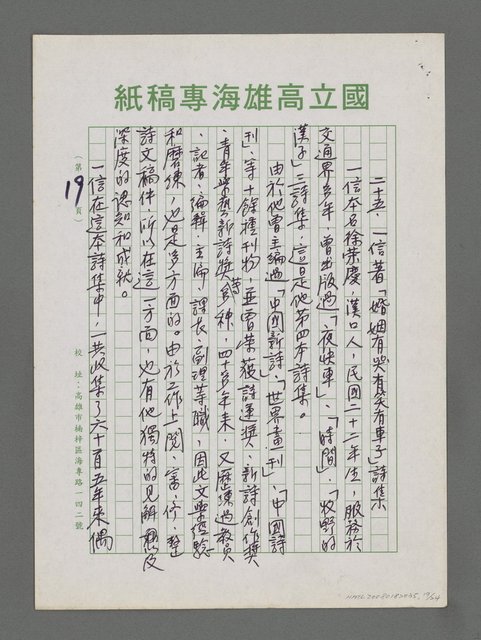 國立高雄海專稿紙
二十五、一信著「婚姻有哭有笑有車子」詩集
一信本名徐榮慶，漢口人，民國二十二年生，服務於
交通界多年，曾出版過「夜快車」、「時間」、「牧野的
漢子」三詩集，這是他第四本詩集。
由於他曾主編過「中國新詩」、「世界畫刊」、「中國詩
刊」等十餘種刊物，並曾榮獲詩運獎、新詩創作獎
、青年學藝新詩獎等，四十多年來，又歷練過教員
、記者、編輯、主編、課長、副理等職，因此文藝經驗
和磨練，也是多方面的。由於工作上閱、審、修、整
詩文稿件，所以在這一方面，也有他獨特的見解和
深度的認知和成就。
一信在這本詩集中，一共收集了六十首五年來偶
（第19頁）
校址：高雄市楠梓區海專路一四二號
19/24